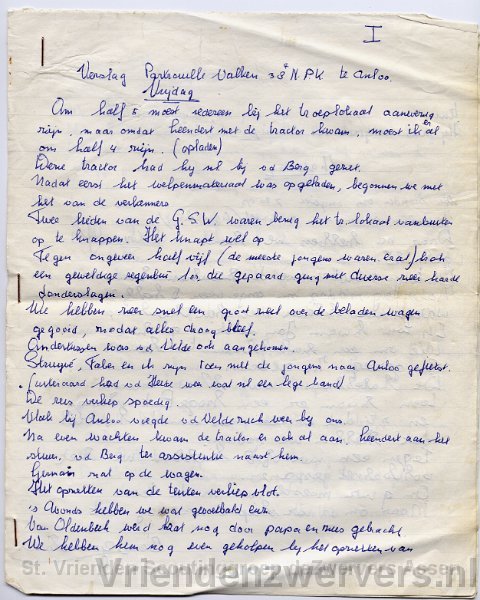 I
Verslag Parksouelle Valken 38e N.P.K te Anloo.
Vrijdag
Om half 5 moest iedereen bij het troeplokaal aanwezig
zijn, maar omdat Leendert met de tractor kwam, moest ik er al
om half 4 zijn. (opladen)
Deze tractor had hij nl bij vd Berg gezet.
Nadat eerst het welpenmateriaal was opgeladen, begonnen we met
het van de verkenners
Twee lieden van de G.S.W. waren bezig het lokaal van buiten
op te knappen. Het knapt wel op
Tegen ongeveer half vijf (de meeste jongens waren er al) brak
een geweldige regenbui los, die gepaard ging met diverse zeer harde
donderslagen.
We hebben zeer snel een groot zeil over de beladen wagen
gegooid, zodat alles droog bleef.
Ondertussen was vd Velde ook aangekomen.
Struyvé, Faber en ik zijn toen met de jongens naar Anloo gefietst.
(uiteraard had vd Velde weer wat nl een lege band)
De reis verliep spoedig.
Vlak bij Anloo voegde vd Velde zich weer bij ons.
Na even wachten kwam de trailer er ook al aan, Leendert aan het
stuur, vd Berg ter assistentie naast hem.
Germain zat op de wagen.
Het opzetten van de tenten verliep vlot.
's Avonds hebben we wat gevoetbald enz.
Van Oldenbeek werd laat nog door papa en mees gebracht
We hebben hem nog even geholpen bij het opzetten van
St.'Vrienden Scoutinggroep de Zwervers Assen
Vriendenzwervers.nl